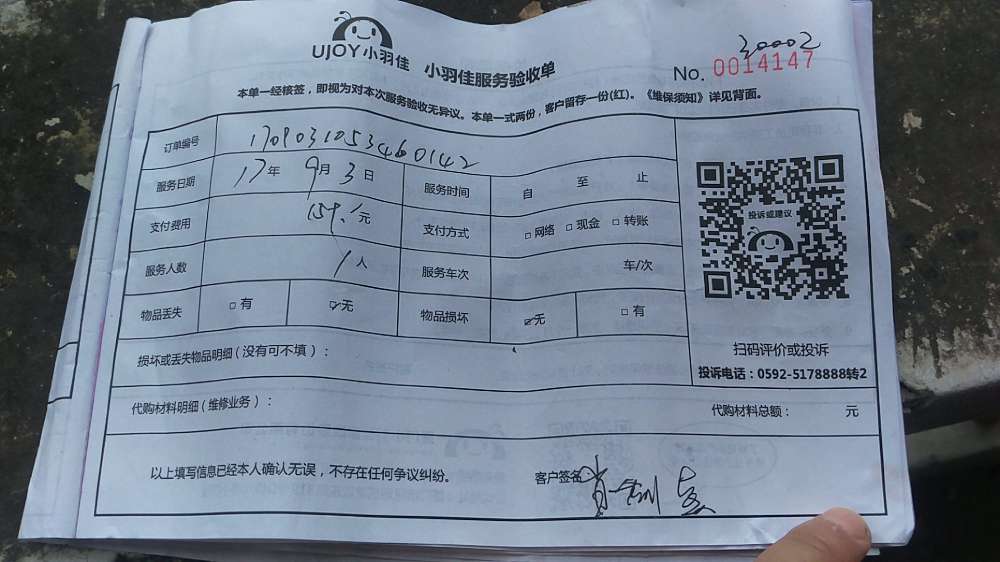 UJOY小羽佳 小羽佳服务验收单
30002
No. 0014147
本单一经核签，即视为对本次服务验收无异议。本单一式两份，客户留存一份(红)。《维保须知》详见背面。
订单编号 1709031053460142
服务日期 17年 9月 3日 服务时间 自 至 止
支付费用 159.1元 支付方式 □网络 □现金 □转账
服务人数 1人 服务车次 车/次
物品丢失 □有 ☑无 物品损坏 ☑无 □有
投诉或建议
损坏或丢失物品明细(没有可不填)：
扫码评价或投诉
投诉电话：0592-5178888转2
代购材料明细(维修业务)： 代购材料总额： 元
以上填写信息已经本人确认无误，不存在任何争议纠纷。 客户签名